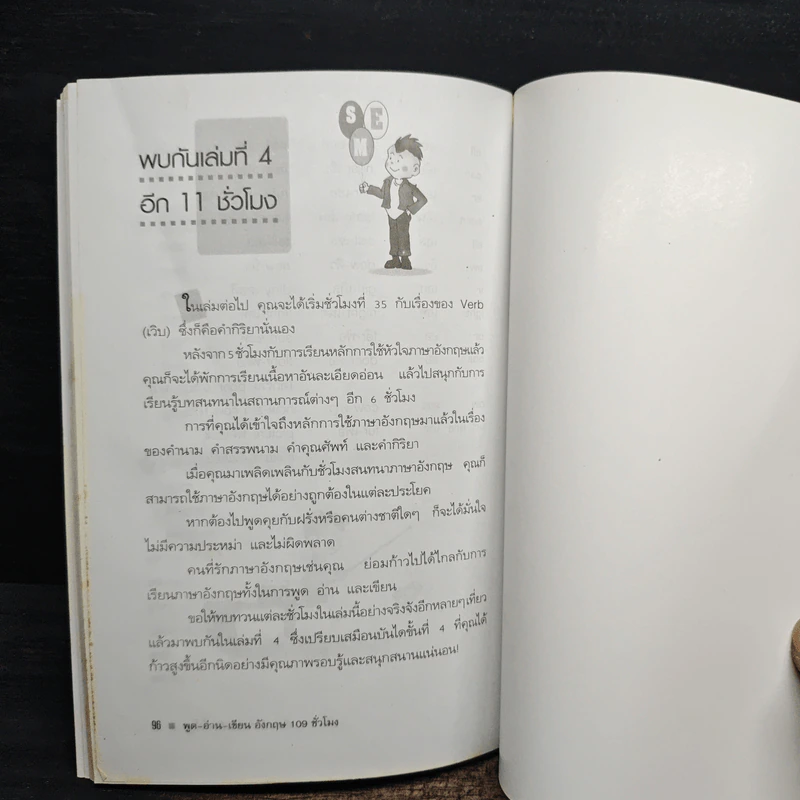 S E
M
พบกันเล่มที่ 4
อีก 11 ชั่วโมง
ในเล่มต่อไป คุณจะได้เริ่มชั่วโมงที่ 35 กับเรื่องของ Verb
(เวิบ) ซึ่งก็คือคำกิริยานั่นเอง
หลังจาก 5 ชั่วโมงกับการเรียนหลักการใช้หัวใจภาษาอังกฤษแล้ว
คุณก็จะได้พักการเรียนเนื้อหาอันละเอียดอ่อน แล้วไปสนุกกับการ
เรียนรู้บทสนทนาในสถานการณ์ต่างๆ อีก 6 ชั่วโมง
การที่คุณได้เข้าใจถึงหลักการใช้ภาษาอังกฤษมาแล้วในเรื่อง
ของคำนาม คำสรรพนาม คำคุณศัพท์ และคำกิริยา
เมื่อคุณมาเพลิดเพลินกับชั่วโมงสนทนาภาษาอังกฤษ คุณก็
สามารถใช้ภาษาอังกฤษได้อย่างถูกต้องในแต่ละประโยค
หากต้องไปพูดคุยกับฝรั่งหรือคนต่างชาติใดๆ ก็จะได้มั่นใจ
ไม่มีความประหม่า และไม่ผิดพลาด
คนที่รักภาษาอังกฤษเช่นคุณ ย่อมก้าวไปได้ไกลกับการ
เรียนภาษาอังกฤษทั้งในการพูด อ่าน และเขียน
ขอให้ทบทวนแต่ละชั่วโมงในเล่มนี้อย่างจริงจังอีกหลายๆเที่ยว
แล้วมาพบกันในเล่มที่ 4 ซึ่งเปรียบเสมือนบันไดขั้นที่ 4 ที่คุณได้
ก้าวสูงขึ้นอีกนิดอย่างมีคุณภาพรอบรู้และสนุกสนานแน่นอน!
96 ■ พูด-อ่าน-เขียน อังกฤษ 109 ชั่วโมง